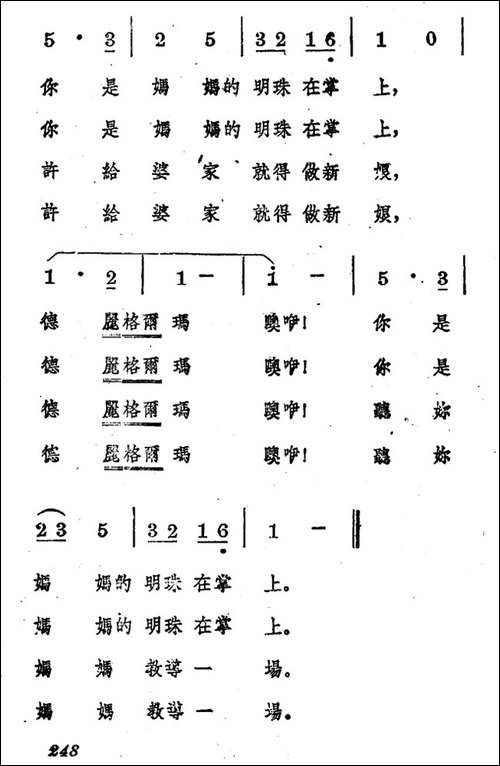 5 · 3 | 2 5 | 32 16 | 1 0 |
你 是 媽 媽的 明珠 在掌 上,
你 是 媽 媽的 明珠 在掌 上,
許 給 婆 家 就得 做新 娘,
許 給 婆 家 就得 做新 娘,
1 · 2 | 1 - | i - | 5 · 3 |
德 麗格爾 瑪 噢咿! 你 是
德 麗格爾 瑪 噢咿! 你 是
德 麗格爾 瑪 噢咿! 聽 妳
德 麗格爾 瑪 噢咿! 聽 妳
23 5 | 32 16 | 1 - ‖
媽 媽的 明珠 在掌 上。
媽 媽的 明珠 在掌 上。
媽 媽 教導 一 場。
媽 媽 教導 一 場。
248